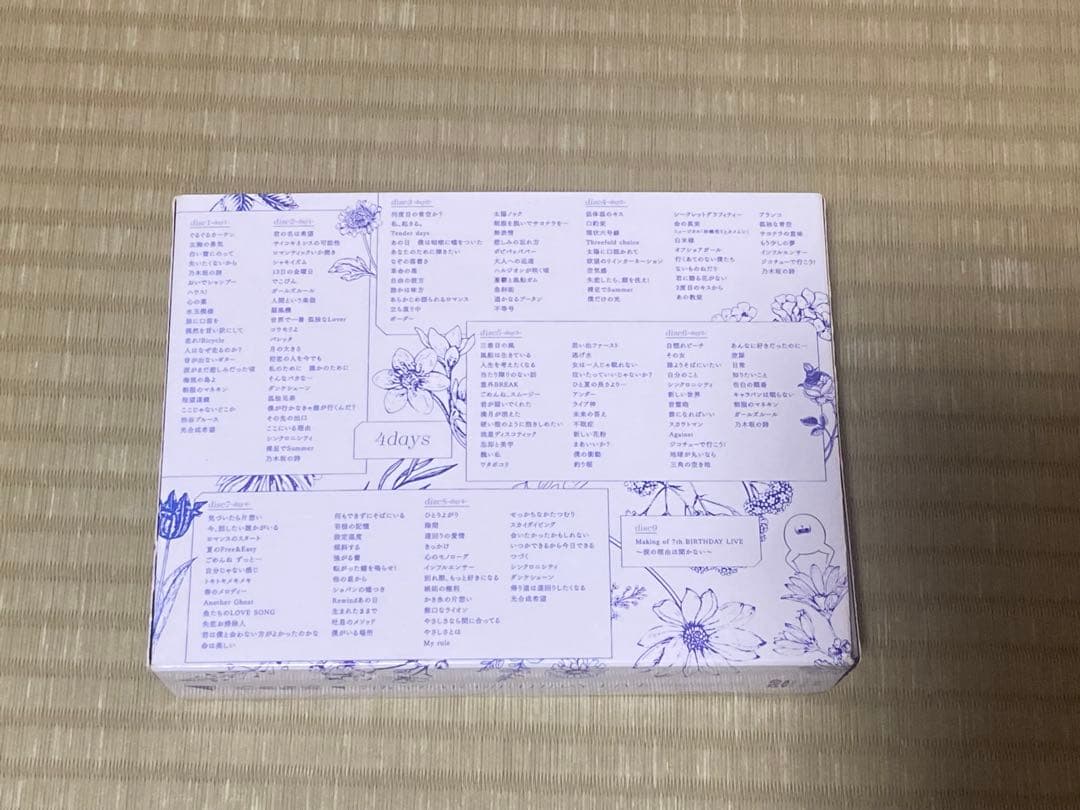 disc1-day1-
ぐるぐるカーテン
左胸の勇気
白い雲にのって
失いたくないから
乃木坂の詩
おいでシャンプー
ハウス!
心の薬
水玉模様
狼に口笛を
偶然を言い訳にして
走れ!Bicycle
人はなぜ走るのか?
音が出ないギター
涙がまだ悲しみだった頃
海流の島よ
制服のマネキン
指望遠鏡
ここじゃないどこか
渋谷ブルース
光合成希望
disc2-day1-
君の名は希望
サイコキネシスの可能性
ロマンティックいか焼き
シャキイズム
13日の金曜日
でこぴん
ガールズルール
人間という楽器
扇風機
世界で一番 孤独なLover
コウモリよ
バレッタ
月の大きさ
初恋の人を今でも
私のために 誰かのために
そんなバカな…
ダンケシェーン
孤独兄弟
僕が行かなきゃ誰が行くんだ?
その先の出口
ここにいる理由
シンクロニシティ
裸足でSummer
乃木坂の詩
disc3-day2-
何度目の青空か?
私、起きる。
Tender days
あの日 僕は咄嗟に嘘をついた
あなたのために弾きたい
なぞの落書き
革命の馬
自由の彼方
誰かは味方
あらかじめ語られるロマンス
立ち直り中
ボーダー
太陽ノック
制服を脱いでサヨナラを…
無表情
悲しみの忘れ方
ポピパッパパー
大人への近道
ハルジオンが咲く頃
憂鬱と風船ガム
急斜面
遥かなるブータン
不等号
disc4-day2-
低体温のキス
口約束
環状六号線
Threefold choice
太陽に口説かれて
欲望のリインカーネーション
空気感
失恋したら、顔を洗え!
裸足でSummer
僕だけの光
シークレットグラフィティー
命の真実
ミュージカル「林檎売りとカメムシ」
白米様
オフショアガール
行くあてのない僕たち
ないものねだり
君に贈る花がない
2度目のキスから
あの教室
ブランコ
孤独な青空
サヨナラの意味
もう少しの夢
インフルエンサー
ジコチューで行こう!
乃木坂の詩
4days
disc5-day3-
三番目の風
風船は生きている
人生を考えたくなる
当たり障りのない話
意外BREAK
ごめんね、スムージー
君が扱いてくれた
満月が消えた
硬い殻のように抱きしめたい
流星ディスコティック
忘却と美学
醜い私
ワタボコリ
思い出ファースト
逃げ水
女は一人じゃ眠れない
泣いたっていいじゃないか?
ひと夏の長さより…
アンダー
ライブ神
未来の答え
不眠症
新しい花粉
まあいいか?
僕の衝動
釣り堀
disc6-day3-
自惚れビーチ
その女
誰よりそばにいたい
自分のこと
シンクロニシティ
新しい世界
雲になればいい
スカウトマン
Against
ジコチューで行こう!
地球が丸いなら
三角の空き地
あんなに好きだったのに…
空扉
日常
知りたいこと
告白の順番
キャラバンは眠らない
制服のマネキン
ガールズルール
乃木坂の詩
disc7-day4-
気づいたら片想い
今、話したい誰かがいる
ロマンスのスタート
夏のFree&Easy
ごめんね ずっと…
自分じゃない感じ
トキトキメキメキ
春のメロディー
Another Ghost
魚たちのLOVE SONG
失恋お掃除人
君は僕と会わない方がよかったのかな
命は美しい
何もできずにそばにいる
羽根の記憶
設定温度
傾斜する
強がる蕾
転がった鐘を鳴らせ!
他の星から
ショパンの嘘つき
Rewindあの日
生まれたままで
吐息のメソッド
僕がいる場所
disc8-day4-
ひとりよがり
隙間
遥回りの愛情
きっかけ
心のモノローグ
インフルエンサー
別れ際、もっと好きになる
嫉妬の権利
かき氷の片想い
無口なライオン
やさしさなら間に合ってる
やさしさとは
My rule
せっかちなかたつむり
スカイダイビング
会いたかったかもしれない
いつかできるから今日できる
つづく
シンクロニシティ
ダンケシェーン
帰り道は遠回りしたくなる
光合成希望
disc9
Making of 7th BIRTHDAY LIVE
～涙の理由は聞かない～